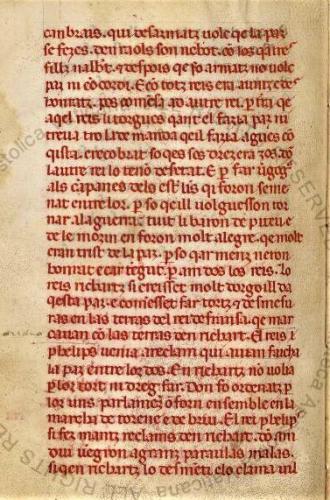 cambrais. qui desarmatz uole qe la paz
se fezes. den raols son nebot. cō los qatre
fillz nalbt. & despois qe fo armatz no uole
paz ni cōcordi. E cō totz reis era aunitz & des
honratz. pos comēsa ad autre rei. p fin qe
aqel reis li tolgues qant el fazia paz ni
treua tro li demanda qeil fazia. agues cō
qista. e recobrat so qes sos drez era zos cō
lautre rei lo tenō deseretat. E p far
als cāpanes dels
nat entre lor. p so qe ill uolguesson tor
nar a la guerra. tuit li baron de
de le
eran trist de la paz. p so qar menz neron
honrat e car p am dos los reis. lo
reis richartz si creisset molt dorgoill da
qesta paz. e comesset far tortz & desmesu
ras en las terras del rei de fransa. qe mar
cauan cō las terras den richart. El reis
phelips uenia a reclam qui auian faicha
la paz entre lor dos. En richartz no uolia
p lor tort ni dreg far. Don fo ordenatz p
lor uns parlamēz ō foron ensemble en la
marcha de torene & de beiu. El rei phelips
si fez mantz reclams den richart. dō am
dui uēgron a granz paraulas malas.
si qen richartz lo desmēti. e lo clama uil